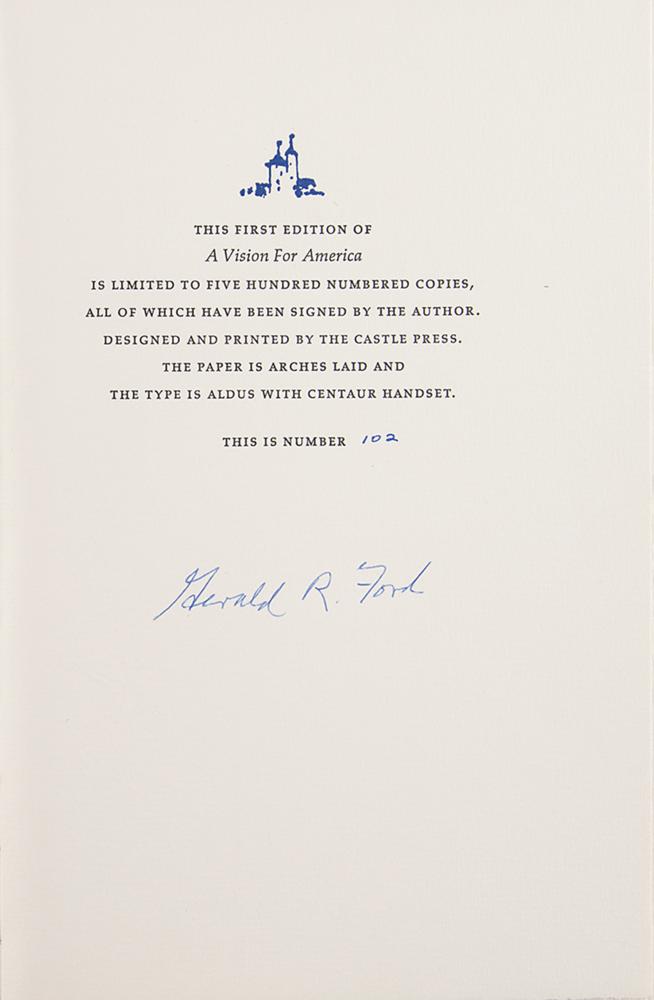 THIS FIRST EDITION OF
A Vision For America
IS LIMITED TO FIVE HUNDRED NUMBERED COPIES,
ALL OF WHICH HAVE BEEN SIGNED BY THE AUTHOR.
DESIGNED AND PRINTED BY THE CASTLE PRESS.
THE PAPER IS ARCHES LAID AND
THE TYPE IS ALDUS WITH CENTAUR HANDSET.
THIS IS NUMBER 102
Gerald R. Ford